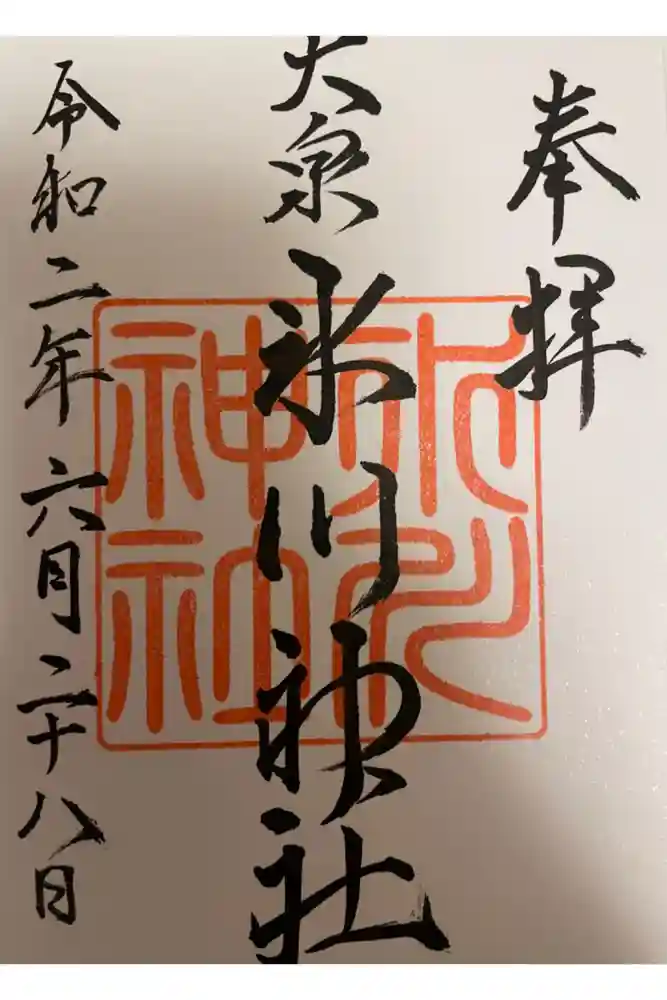 奉拝
大泉氷川神社
令和二年六月二十八日
氷川
神社